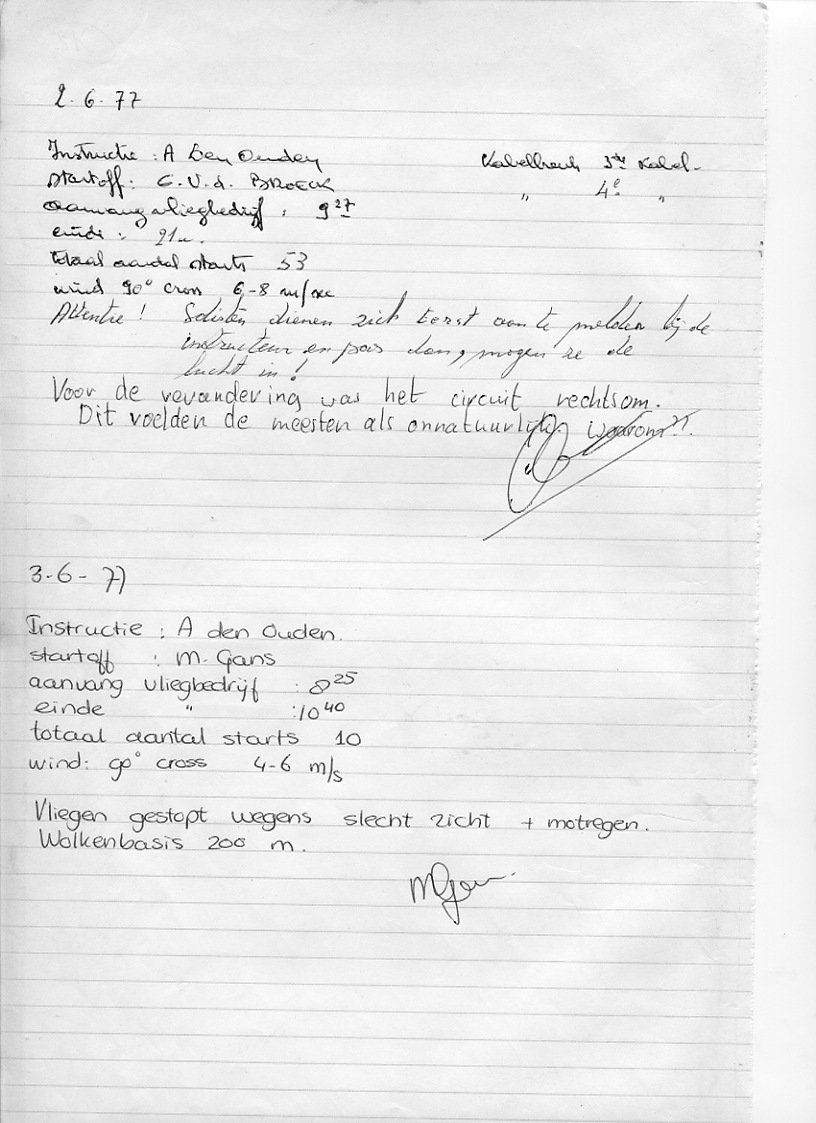 2.6.77
Instructie : A Den Ouden
Kabelbreuk 3de kabel.
startoff: C. V. d. BROECK
" 4e "
aanvang vliegbedrijf : 9 27
einde : 21 u.
totaal aantal starts 53
wind 90° cross 6-8 m/sec
Attentie ! Solisten dienen zich eerst aan te melden bij de
instructeur en pas dan, mogen ze de
lucht in !
Voor de verandering was het circuit rechtsom.
Dit voelden de meesten als onnatuurlijk. Waarom?!.
3-6-77
Instructie : A den Ouden.
startoff : M. Gans
aanvang vliegbedrijf : 8 25
einde " : 10 40
totaal aantal starts 10
wind: 90° cross 4-6 m/s
Vliegen gestopt wegens slecht zicht + motregen.
Wolkenbasis 200 m.